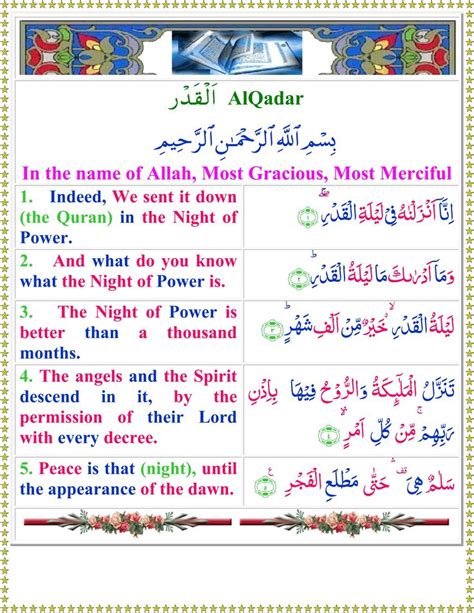 اَلْقَدْر AlQadar
بِسْمِ اللّٰهِ الرَّحْمٰنِ الرَّحِيْمِ
In the name of Allah, Most Gracious, Most Merciful
1. Indeed, We sent it down
(the Quran) in the Night of
Power.
اِنَّاۤ اَنْزَلْنٰهُ فِیْ لَیْلَةِ الْقَدْرِۚۖ ﴿۱﴾
2. And what do you know
what the Night of Power is.
وَمَاۤ اَدْرٰىكَ مَا لَیْلَةُ الْقَدْرِؕ ﴿۲﴾
3. The Night of Power is
better than a thousand
months.
لَیْلَةُ الْقَدْرِ ۙ خَیْرٌ مِّنْ اَلْفِ شَهْرٍؕ ﴿۳﴾
4. The angels and the Spirit
descend in it, by the
permission of their Lord
with every decree.
تَنَزَّلُ الْمَلٰٓىِٕكَةُ وَالرُّوْحُ فِیْهَا بِاِذْنِ
رَبِّهِمْ ۚ مِّنْ كُلِّ اَمْرٍ ۙ ﴿۴﴾
5. Peace is that (night), until
the appearance of the dawn.
سَلٰمٌ ۛ هِیَ حَتّٰى مَطْلَعِ الْفَجْرِ ﴿۵﴾